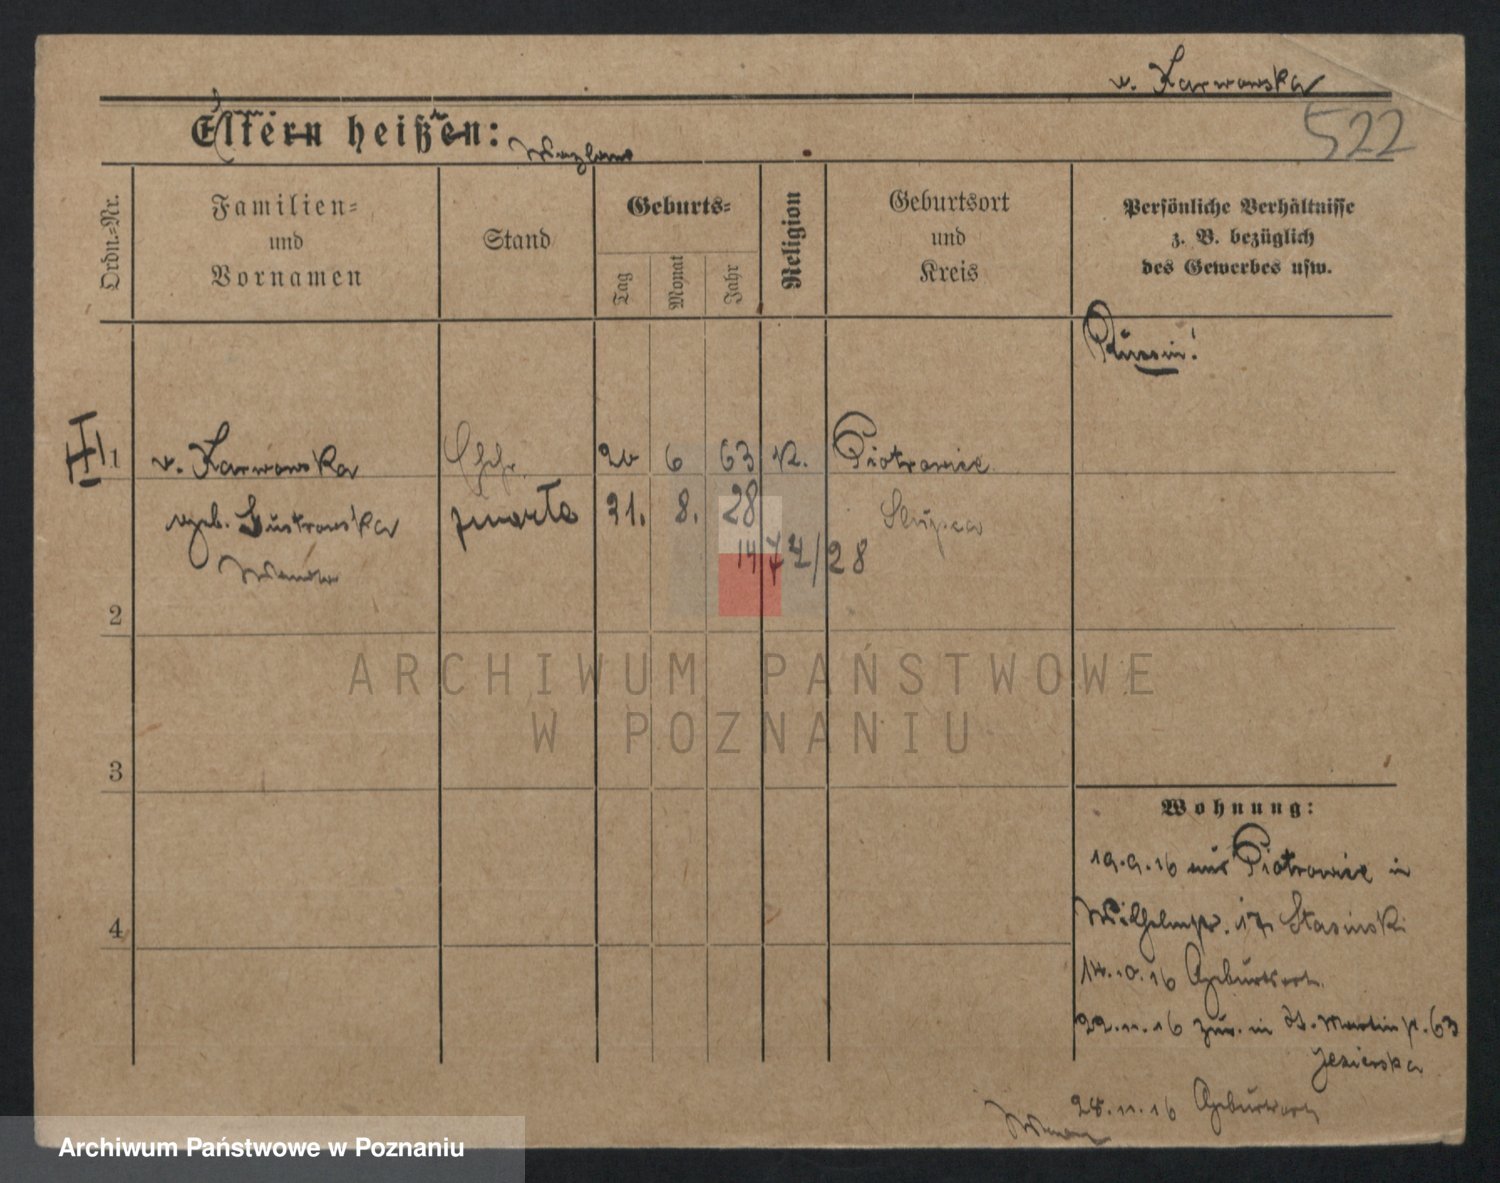 v. Karwowska
522
Eltern heißen:
Ordn.-Nr.
Familien-
und
Vornamen
Stand
Geburts-
Tag
Monat
Jahr
Religion
Geburtsort
und
Kreis
Persönliche Verhältnisse
z. B. bezüglich
des Gewerbes usw.
Russin!
1 v. Karwowska 20 6 63 K. Piotrowice
zmarła 31. 8. 28 Słupca
geb.
1477/28
2
3
4
Wohnung:
19.9.16 aus Piotrowice in
17 Stasinski
14.10.16 Geburtsort
22.11.16 zur. in St. Martinstr. 63
Jezierska
28.11.16 Geburtsort
ARCHIWUM PAŃSTWOWE
W POZNANIU
Archiwum Państwowe w Poznaniu